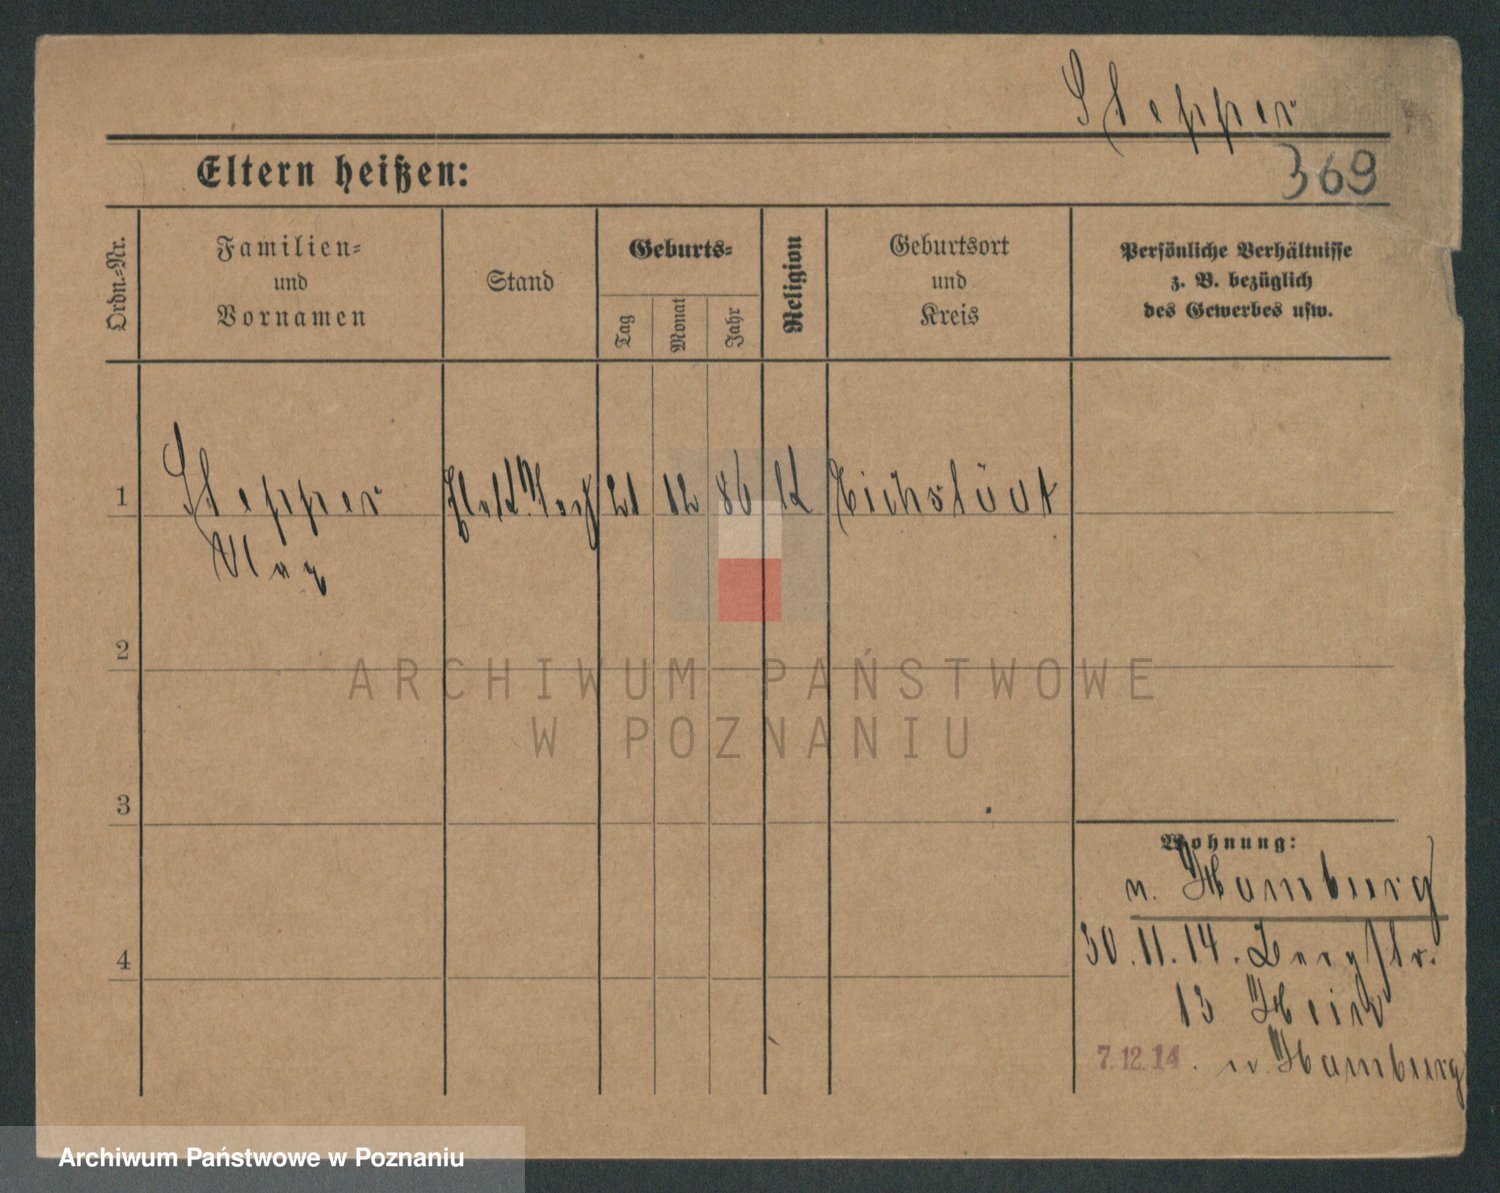 Stepper
369
Eltern heißen:
Ordn.-Nr.
Familien-
und
Vornamen
Stand
Geburts-
Tag
Monat
Jahr
Religion
Geburtsort
und
Kreis
Persönliche Verhältnisse
z. B. bezüglich
des Gewerbes usw.
1
Stepper 21 12 86 K Eichstädt
Max
2
ARCHIWUM PAŃSTWOWE
W POZNANIU
3
Wohnung:
n. Hamburg
4
30.11.14. Bergstr.
13
7.12.14. n. Hamburg
Archiwum Państwowe w Poznaniu